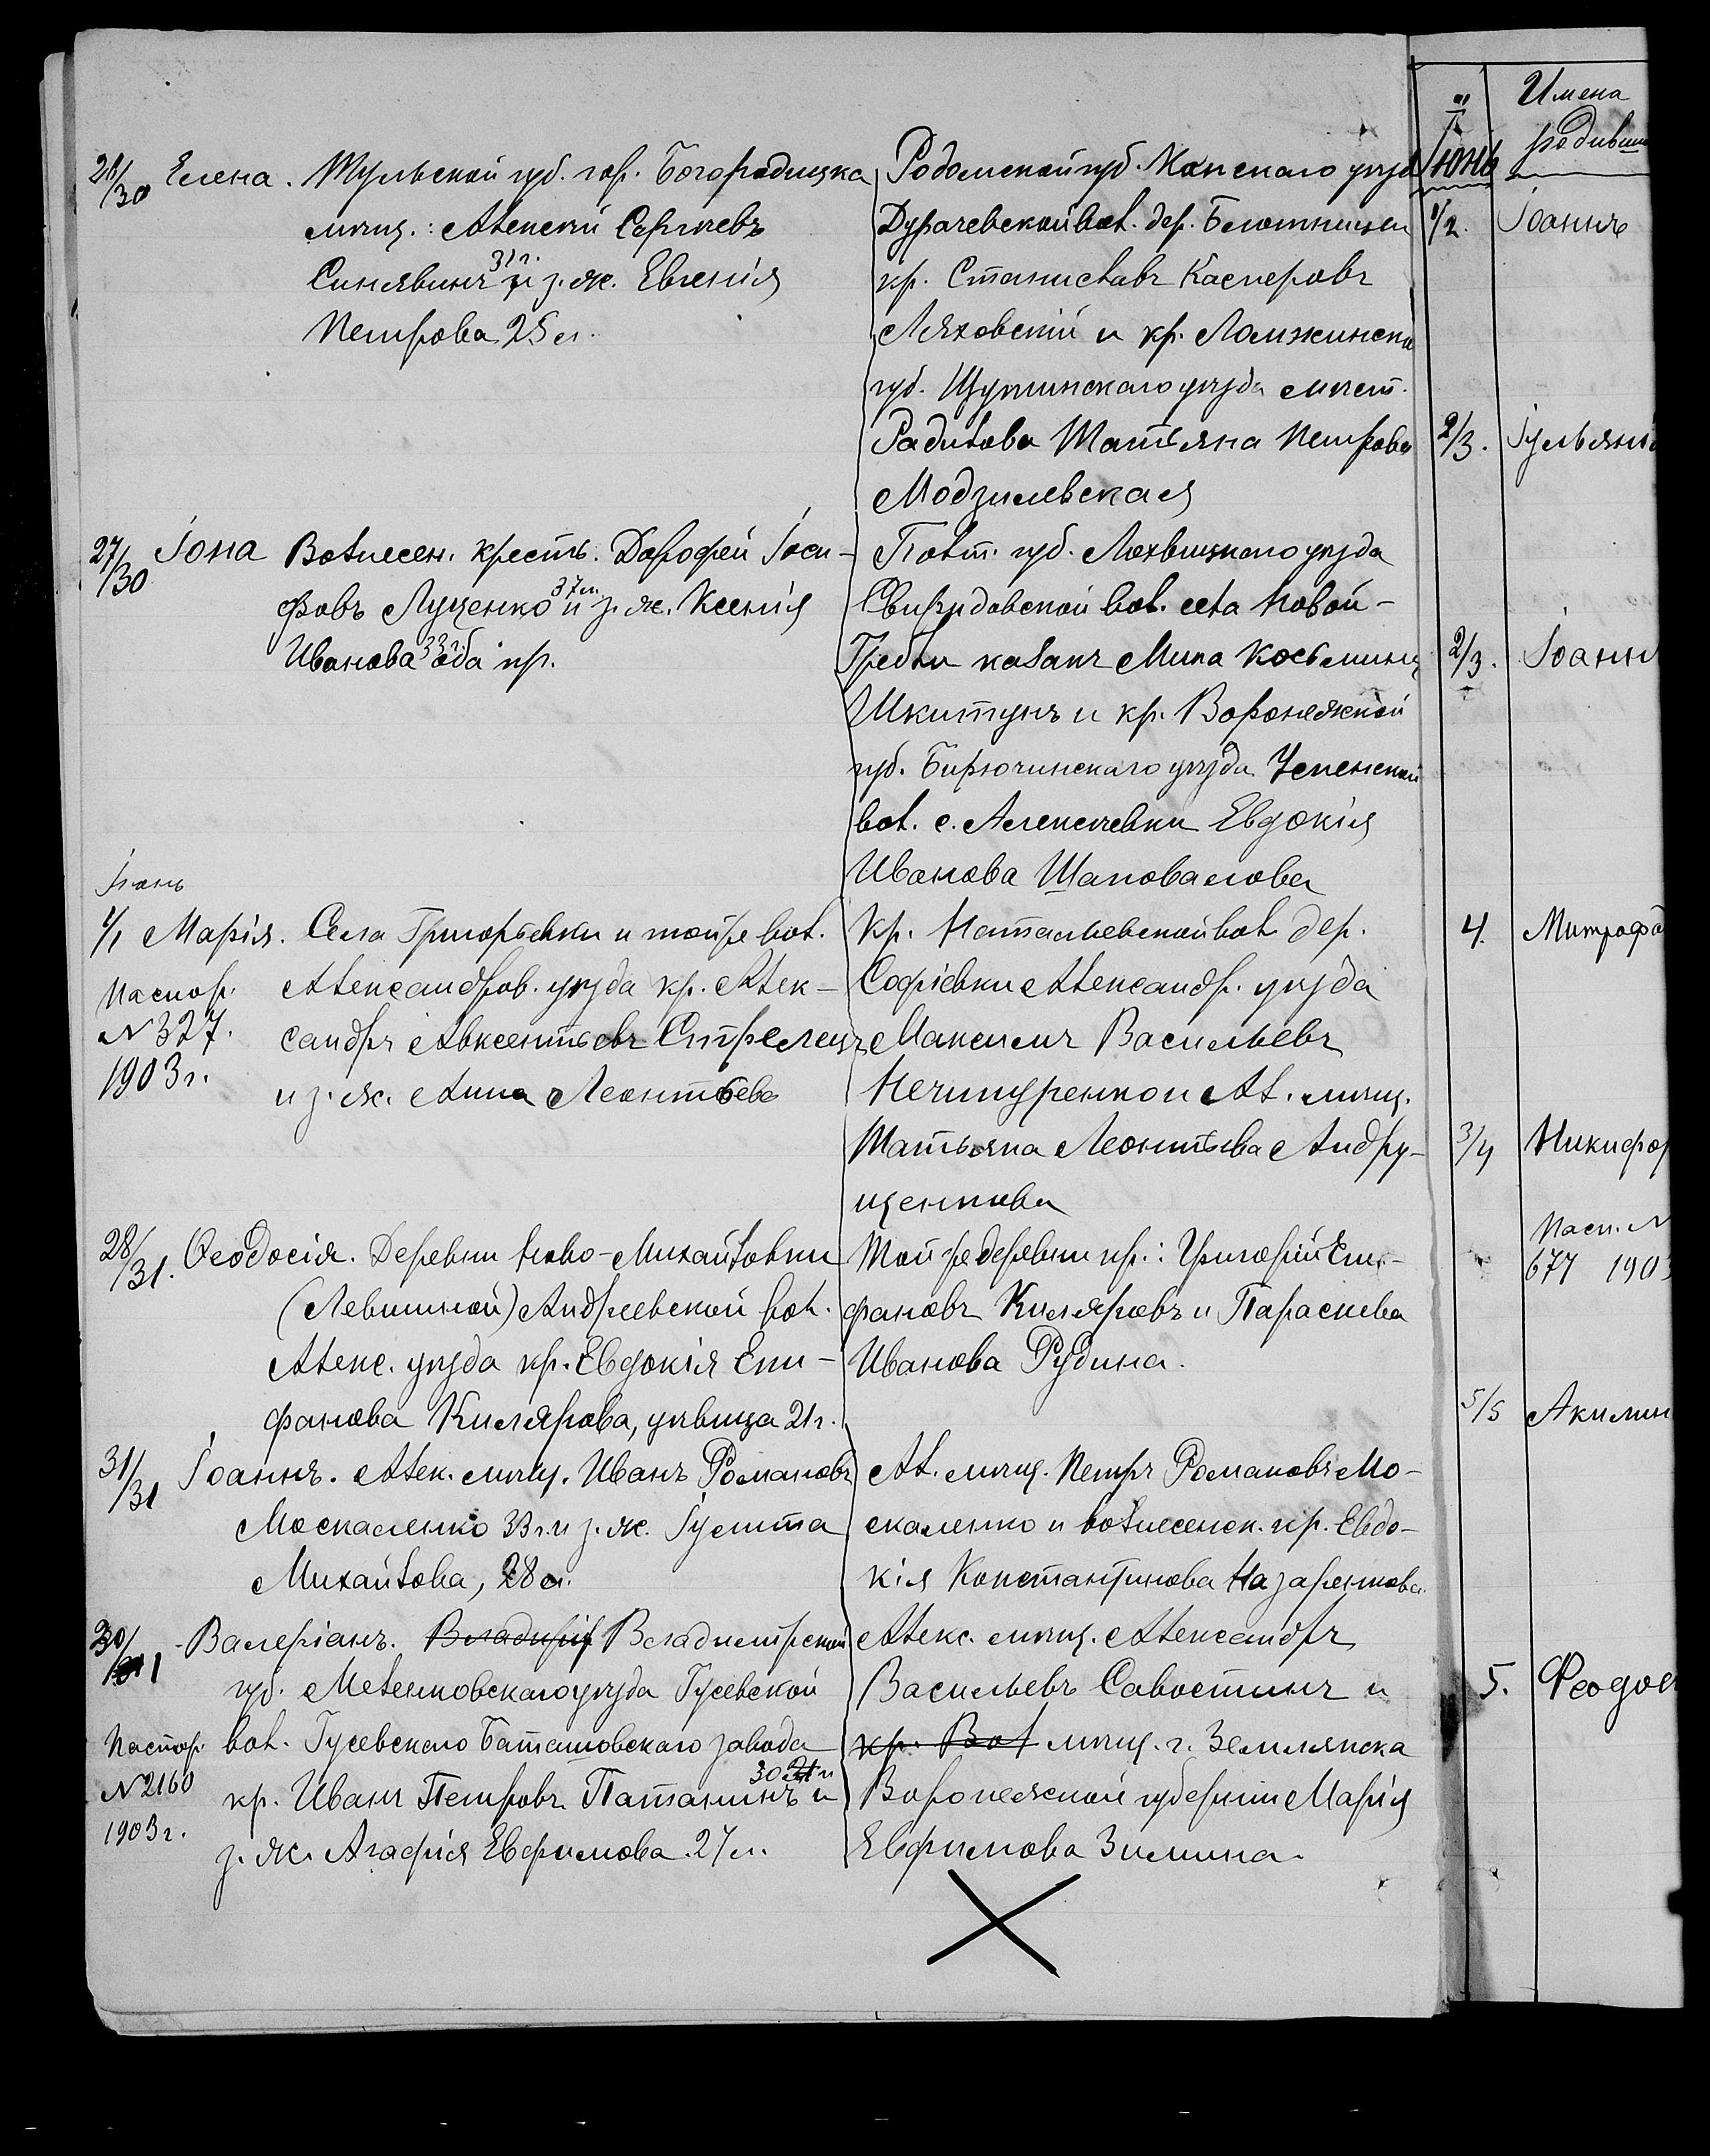 28/30 Елена. Тульской губ. гор. Богородицка
мѣщ.: Алексѣй Сергѣевъ
Синявинъ 31 г. и з. ж. Евгенія
Петрова 25 л.
Радомской губ. Конскаго уѣзда
вол. дер.
кр. Станиславъ Касперовъ
Ляховскій и кр. Ломжинской
губ. Щучинскаго уѣзда мѣст.
Радилова Татьяна Петрова
Модзилевская
27/30 Іона Вознесен. крестьян. Дорофей Іоси-
фовъ Луценко 37 л. и з. ж. Ксенія
Иванова 33 г. оба пр.
Полт. губ. Лохвицкаго уѣзда
Свиридовской вол. села Новой-
Гребли казакъ Мина Косьминъ
Шкитунъ и кр. Воронежской
губ. Бирючинскаго уѣзда Успенской
вол. с. Алексѣевки Евдокія
Иванова Шаповалова
Іюнь
1/1 Марія. Села Григорьевки и той же вол.
Паспор.
№ 327.
1903 г.
Александров. уѣзда кр. Алек-
сандръ Авксентьевъ Стрелецъ
и з. ж. Анна Леонтьева
Кр. Натальевской вол. дер.
Софіевки Александр. уѣзда
Максимъ Васильевъ
Нечитуренко и Ал. мѣщ.
Татьяна Леонтьева Андру-
щенкова
28/31. Ѳеодосія. Деревни Ново-Михайловки
(Левшиной) Андреевской вол.
Алекс. уѣзда кр. Евдокія Епи-
фанова Килярова, дѣвица 21 г.
Той же деревни кр.: Григорій Епи-
фановъ Киляровъ и Параскева
Иванова Рудина.
31/31 Іоаннъ. Алек. мѣщ. Иванъ Романовъ
Москаленко 33 г. и з. ж. Іулитта
Михайлова, 28 л.
Ал. мѣщ. Петръ Романовъ Мо-
скаленко и вознесенск. кр. Евдо-
кія Константинова Назаренкова.
30/1 Валеріанъ. Владимірской
губ. Меленковскаго уѣзда Гусевской
вол. Гусевскаго Баташовскаго завода
Паспор.
№ 2160
1903 г.
кр. Иванъ Петровъ Патанинъ 30 л. и
з. ж. Агафія Евфимова 27 л.
Алекс. мѣщ. Александръ
Васильевъ Савостинъ и
кр. Воз мѣщ. г. Землянска
Воронежской губерніи Марія
Евфимова Зимина.
Имена
родивши
Іюнь
1/2. Іоаннъ
2/3. Іульяні
2/3. Іоанн
4. Митрофа
3/4 Никифор
Пасп. №
677 190
5/5 Акилин
5. Ѳеодос